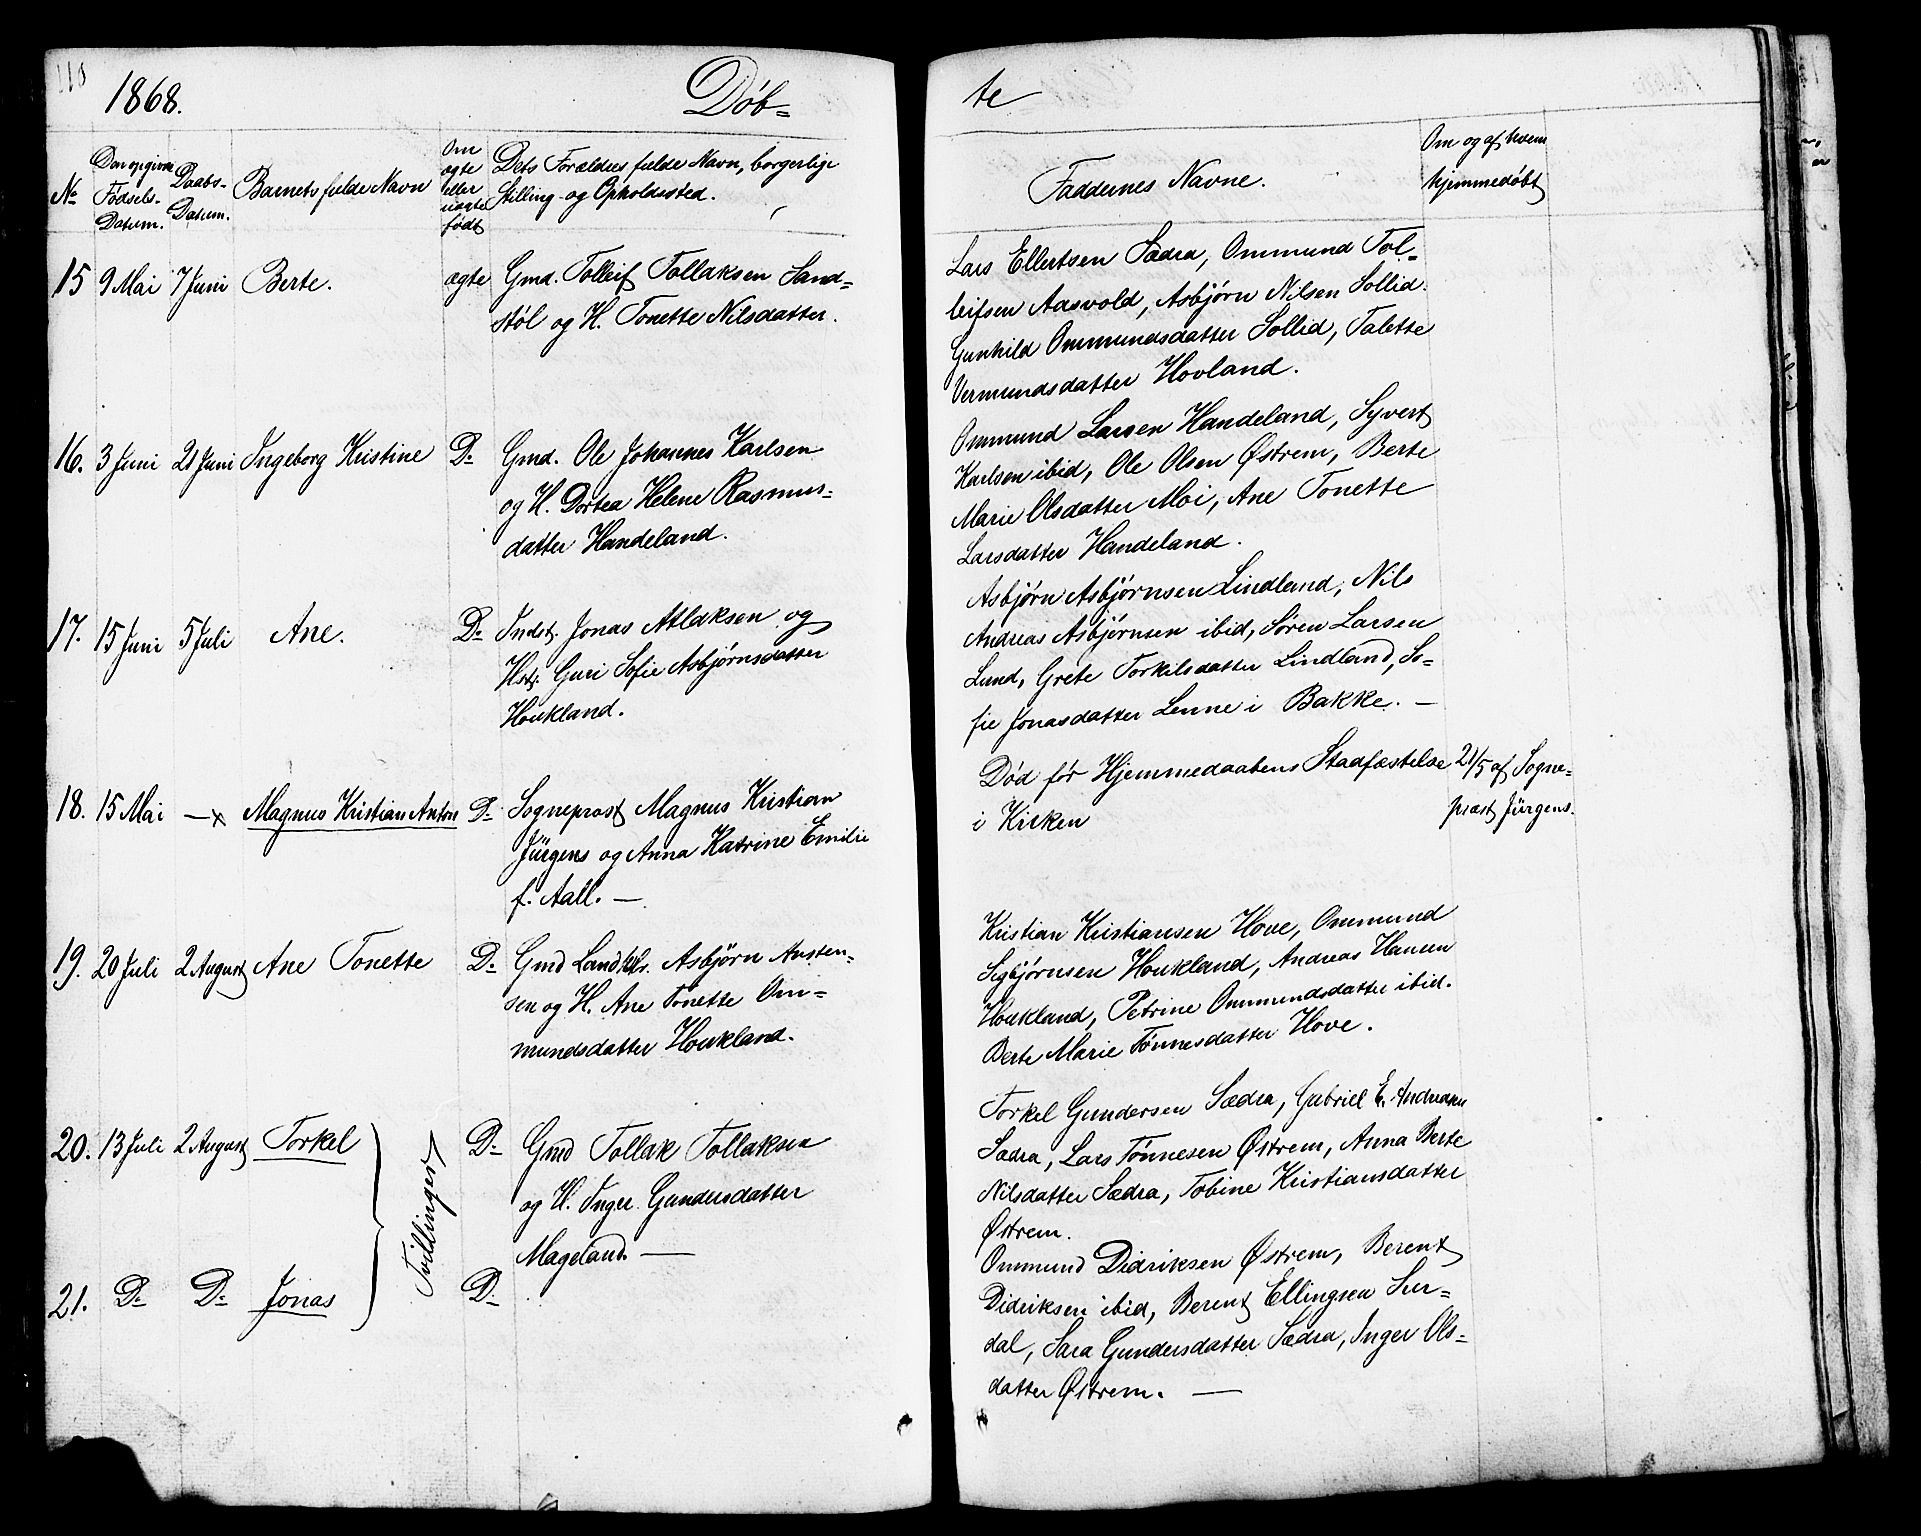 118
1868. Døb= te
No
Den opgivne Fødsels- Datum.
Daabs- Datum.
Barnets fulde Navn
Om ægte eller uægte født
Dets Forældres fulde Navn, borgerlige Stilling og Opholdssted.
Faddernes Navne.
Om og af hvem hjemmedøbt
15 9 Mai 7 Juni Berte. ægte Gmd. Tolleif Tollaksen Sand=
støl og H. Tonette Nilsdatter.
Lars Ellertsen Sædra, Ommund Tol-
leifsen Aasvold, Asbjørn Nilsen Sollid.
Gunhild Ommundsdatter Sollid, Talette
Vermundsdatter Hovland.
16. 3 Juni 21 Juni Ingeborg Kristine Do Gmd. Ole Johannes Karlsen
og H. Dortea Helene Rasmus=
datter Handeland.
Ommund Larsen Handeland, Syvert
Karlsen ibid, Ole Olsen Østrem, Berte
Marie Olsdatter Moi, Ane Tonette
Larsdatter Handeland.
17. 15 Juni 5 Juli Ane. Do Indst. Jonas Atlaksen og
Hst. Guri Sofie Asbjørnsdatter
Houkland.
Asbjørn Asbjørnsen Lindland, Nils
Andreas Asbjørnsen ibid, Søren Larsen
Lund, Grete Torkilsdatter Lindland, So=
fie Jonasdatter Lenne i Bakke. —
18. 15 Mai —x Magnus Kristian Anton Do Sogneprest Magnus Kristian
Jürgens og Anna Katrine Emilie
f. Aall. —
Død før Hjemmedaabens Stadfæstelse
i Kirken
21/5 af Sogne=
præst Jürgens.
19. 20 Juli 2 August Ane Tonette Do Gmd Landhdlr. Asbjørn Austen=
sen og H. Ane Tonette Om=
mundsdatter Houkland.
Kristian Kristiansen Hove, Ommund
Sigbjørnsen Houkland, Andreas Hansen
Houkland, Petrine Ommundsdatter ibid.
Berte Marie Tønnesdatter Hove.
20. 13 Juli 2 August Torkel Do Gmd Tollak Tollaksen
og H. Inger Gundersdatter
Mageland. —
Tvillinger
Torkel Gundersen Sædra, Gabriel E. Andreasen
Sædra, Lars Tønnesen Østrem, Anna Berte
Nilsdatter Sædra, Tobine Kristiansdatter
Østrem.
21. Do Do Jonas Do
Ommund Didriksen Østrem, Berent
Didriksen ibid, Berent Ellingsen Sur=
dal, Sara Gundersdatter Sædra, Inger Ols=
datter Østrem. —